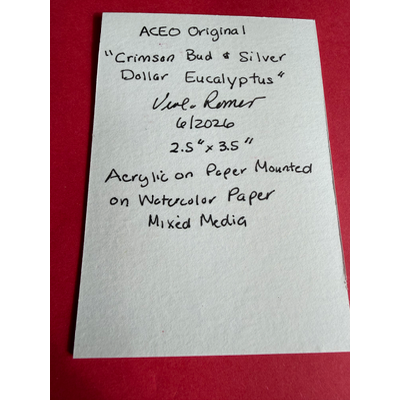 ACEO Original
"Crimson Bud & Silver
Dollar Eucalyptus"
6/2026
2.5" x 3.5"
Acrylic on Paper Mounted
on Watercolor Paper
Mixed Media